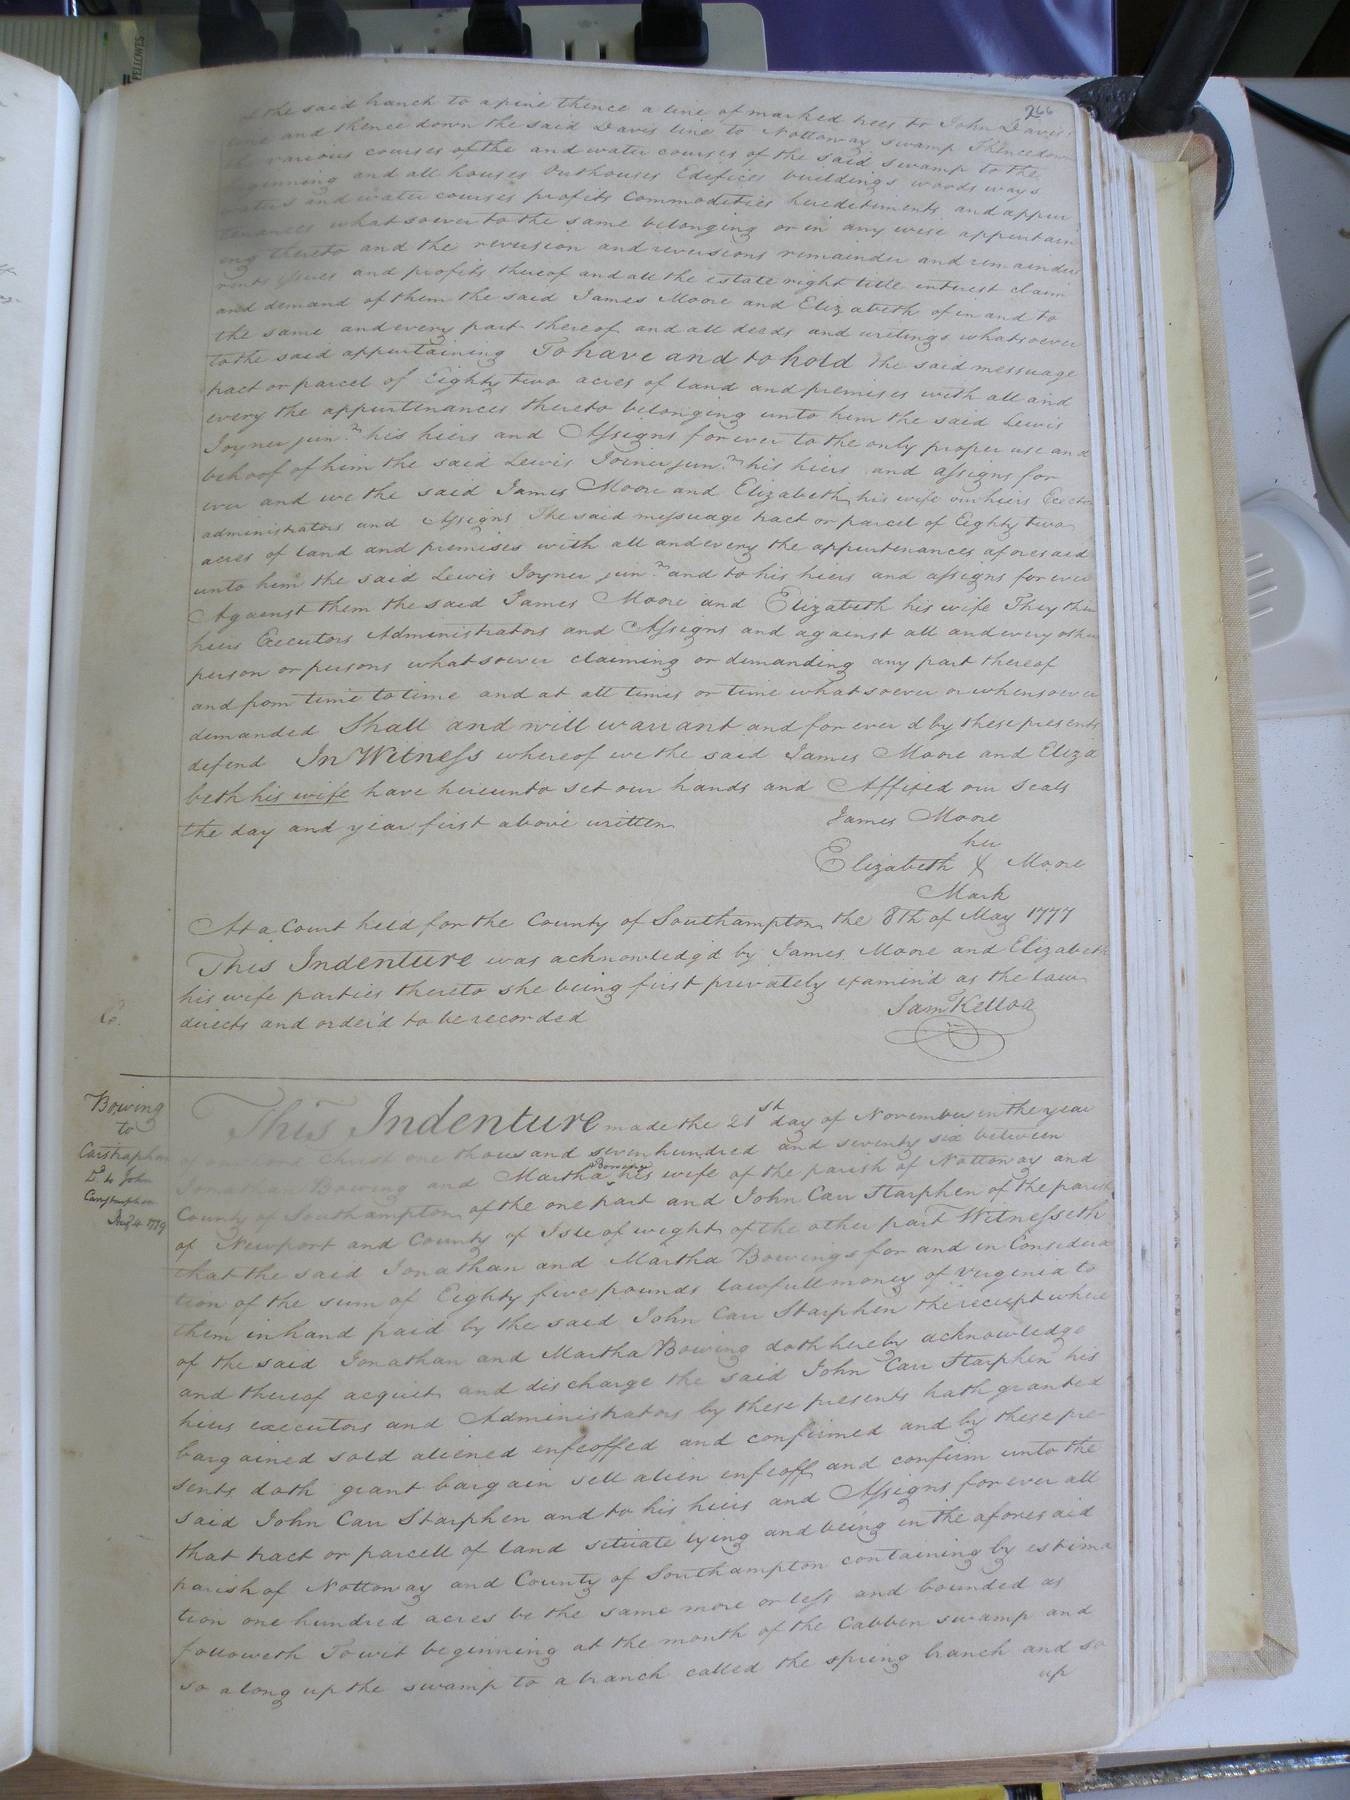 FELLOWES
266
of the said branch to a pine thence a line of marked trees to John Davis's
line and thence down the said Davis line to Nottoway swamp Thence down
the various courses of the and water courses of the said swamp to the
beginning and all houses Outhouses Edifices buildings woods ways
waters and water courses profits Commodities hereditements and appur
tenances whatsoever to the same belonging or in any wise appertain
ing thereto and the reversion and reversions remainder and remainders
rents Issues and profits thereof and all the estate right title interest claim
and demand of them the said James Moore and Elizabeth of in and to
the same and every part thereof and all deeds and writings whatsoever
to the said appertaining To have and to hold the said messuage
tract or parcel of Eighty two acres of land and premises with all and
every the appurtenances thereto belonging unto him the said Lewis
Joyner junr his heirs and Assigns for ever to the only proper use and
behoof of him the said Lewis Joiner junr his heirs and assigns for
ever and we the said James Moore and Elizabeth his wife our heirs Exectrs
administrators and Assigns The said messuage tract or parcel of Eighty two
acres of land and premises with all and every the appurtenances aforesaid
unto him the said Lewis Joyner junr and to his heirs and assigns for ever
Against them the said James Moore and Elizabeth his wife They their
heirs Executors Administrators and Assigns and against all and every other
person or persons whatsoever claiming or demanding any part thereof
and from time to time and at all times or time whatsoever or whensoever
demanded Shall and will warrant and for ever d by these presents
defend In Witness whereof we the said James Moore and Eliza
beth his wife have hereunto set our hands and Affixed our Seals
the day and year first above written
James Moore
her
Elizabeth X Moore
Mark
At a Court held for the County of Southampton the 8th of May 1777
This Indenture was acknowledg'd by James Moore and Elizabeth
his wife parties thereto she being first privately examin'd as the law
directs and order'd to be recorded
Sam Kelloa
Bowing
to
Carstraphen
Dd to John
Carstraphen
Augt 4 1779
This Indenture made the 21st day of November in the year
of our Lord Christ one thousand seven hundred and seventy six between
Jonathan Bowing and Martha Bowing his wife of the parish of Nottoway and
County of Southampton of the one part and John Carr Starphen of the parish
of Newport and County of Isle of wight of the other part Witnesseth
that the said Jonathan and Martha Bowings for and in Considera
tion of the sum of Eighty five pounds lawfull money of Virginia to
them in hand paid by the said John Carr Starphen the receipt where
of the said Jonathan and Martha Bowing doth hereby acknowledge
and thereof acquiet and discharge the said John Carr Starphen his
heirs executors and Administrators by these presents hath granted
bargained sold aliened enfeoffed and confirmed and by these pre-
sents doth grant bargain sell alien enfeoff and confirm unto the
said John Carr Starphen and to his heirs and Assigns for ever all
that tract or parcell of land situate lying and being in the aforesaid
parish of Nottoway and County of Southampton containing by estima
tion one hundred acres be the same more or less and bounded as
followeth To wit beginning at the mouth of the Cabben swamp and
so along up the swamp to a branch called the spring branch and so
up